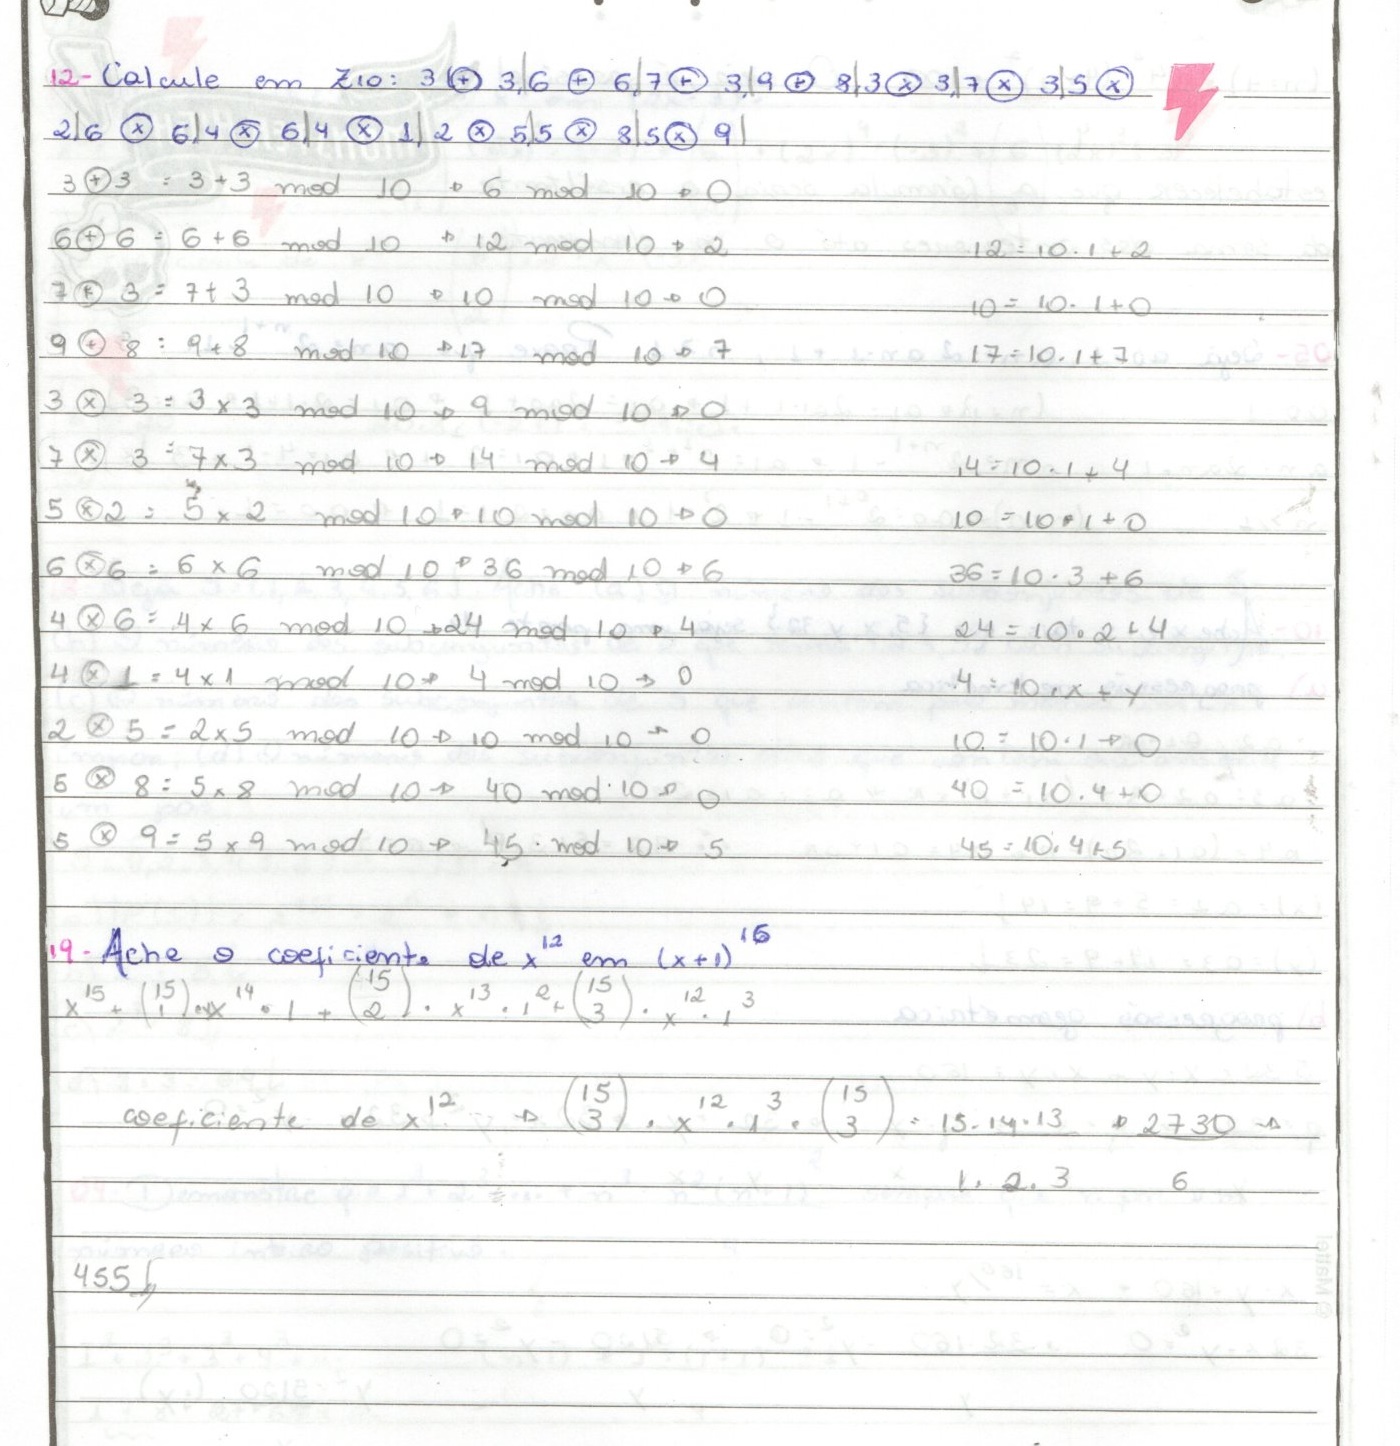 12- Calcule em Z10: 3 ⊕ 3|6 ⊕ 6|7 ⊕ 3|9 ⊕ 8|3 ⊗ 3|7 ⊗ 3|5 ⊗
2|6 ⊗ 6|4 ⊗ 6|4 ⊗ 1|2 ⊗ 5|5 ⊗ 8|5 ⊗ 9|
3 ⊕ 3 = 3+3 mod 10 → 6 mod 10 → 0
6 ⊕ 6 = 6+6 mod 10 → 12 mod 10 → 2 12 = 10.1+2
7 ⊕ 3 = 7+3 mod 10 → 10 mod 10 → 0 10 = 10.1+0
9 ⊕ 8 = 9+8 mod 10 → 17 mod 10 → 7 17 = 10.1+7
3 ⊗ 3 = 3x3 mod 10 → 9 mod 10 → 0
7 ⊗ 3 = 7x3 mod 10 → 14 mod 10 → 4 14 = 10.1+4
5 ⊗ 2 = 5x2 mod 10 → 10 mod 10 → 0 10 = 10.1+0
6 ⊗ 6 = 6x6 mod 10 → 36 mod 10 → 6 36 = 10.3+6
4 ⊗ 6 = 4x6 mod 10 → 24 mod 10 → 4 24 = 10.2+4
4 ⊗ 1 = 4x1 mod 10 → 4 mod 10 → 0 4 = 10.x+y
2 ⊗ 5 = 2x5 mod 10 → 10 mod 10 → 0 10 = 10.1 → 0
5 ⊗ 8 = 5x8 mod 10 → 40 mod 10 → 0 40 = 10.4+0
5 ⊗ 9 = 5x9 mod 10 → 45 mod 10 → 5 45 = 10.4+5
19- Ache o coeficiente de x¹² em (x+1)¹⁵
x¹⁵ + (15 1) . x¹⁴ . 1 + (15 2) . x¹³ . 1² + (15 3) . x¹² . 1³
coeficiente de x¹² → (15 3) . x¹² . 1³ . (15 3) = 15.14.13 → 2730 →
1.2.3 6
455
© Mattel